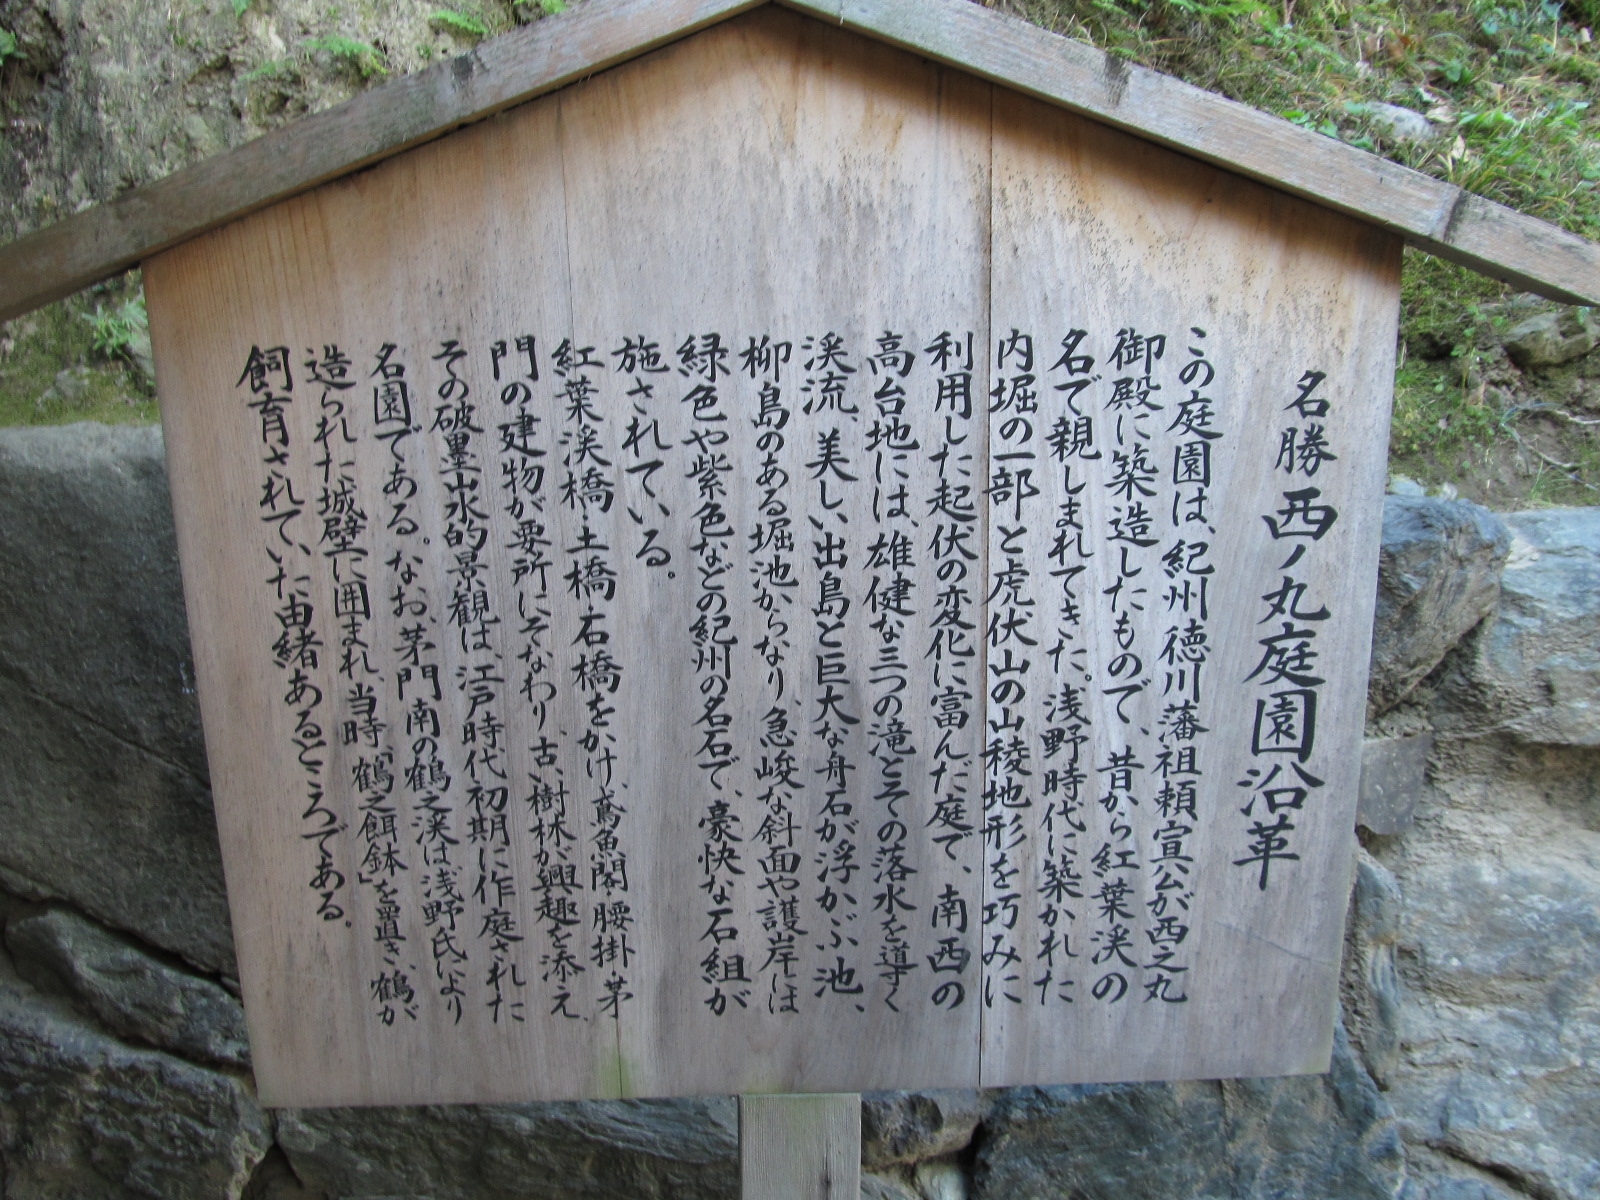 名勝 西ノ丸庭園沿革
この庭園は、紀州徳川藩祖頼宣公が西之丸
御殿に築造したもので、昔から紅葉渓の
名で親しまれてきた。浅野時代に築かれた
内堀の一部と虎伏山の山稜地形を巧みに
利用した起伏の変化に富んだ庭で、南西の
高台地には、雄健な三つの滝とその落水を導く
渓流、美しい出島と巨大な舟石が浮かぶ池、
柳島のある堀池からなり、急峻な斜面や護岸には
緑色や紫色などの紀州の名石で、豪快な石組が
施されている。
紅葉渓橋・土橋・石橋をかけ、鳶魚閣・腰掛・茅
門の建物が要所にそなわり、古い樹林が興趣を添え、
その破墨山水的景観は、江戸時代初期に作庭された
名園である。なお、茅門南の鶴之渓は浅野氏により
造られた城壁に囲まれ、当時「鶴之餌鉢」を置き、鶴が
飼育されていた由緒あるところである。